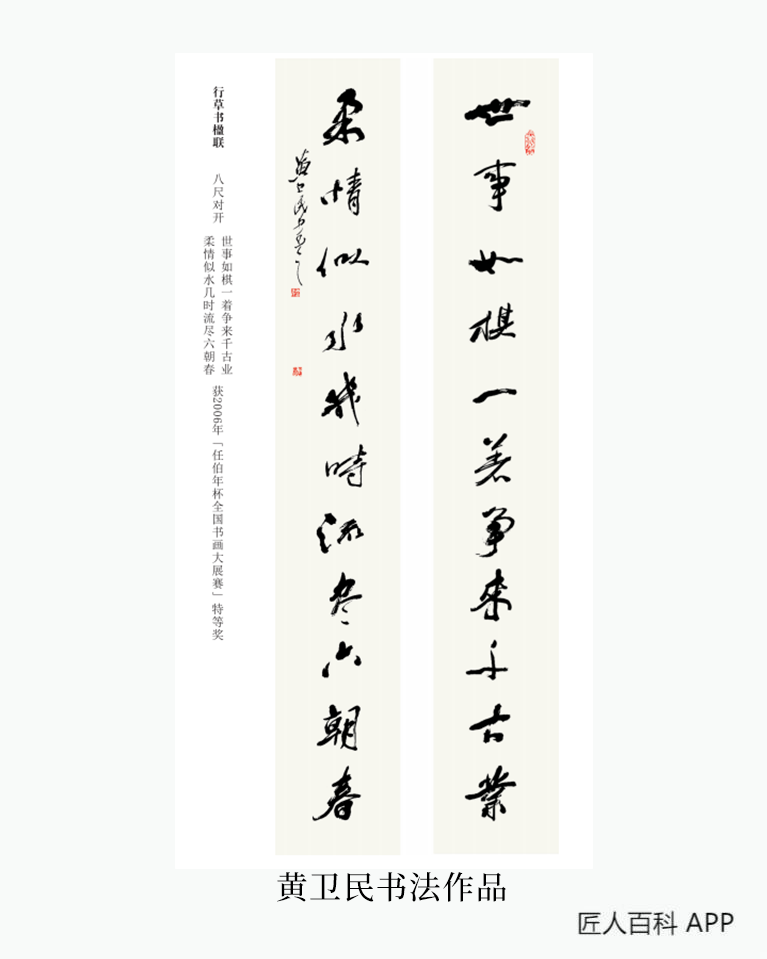 世事如棋一着争来千古业
柔情似水几時流尽六朝春
黄卫民书
行草书楹联
八尺对开
世事如棋一着争来千古业
柔情似水几时流尽六朝春
获2006年「任伯年杯全国书画大展赛」特等奖
黄卫民书法作品
匠人百科 APP